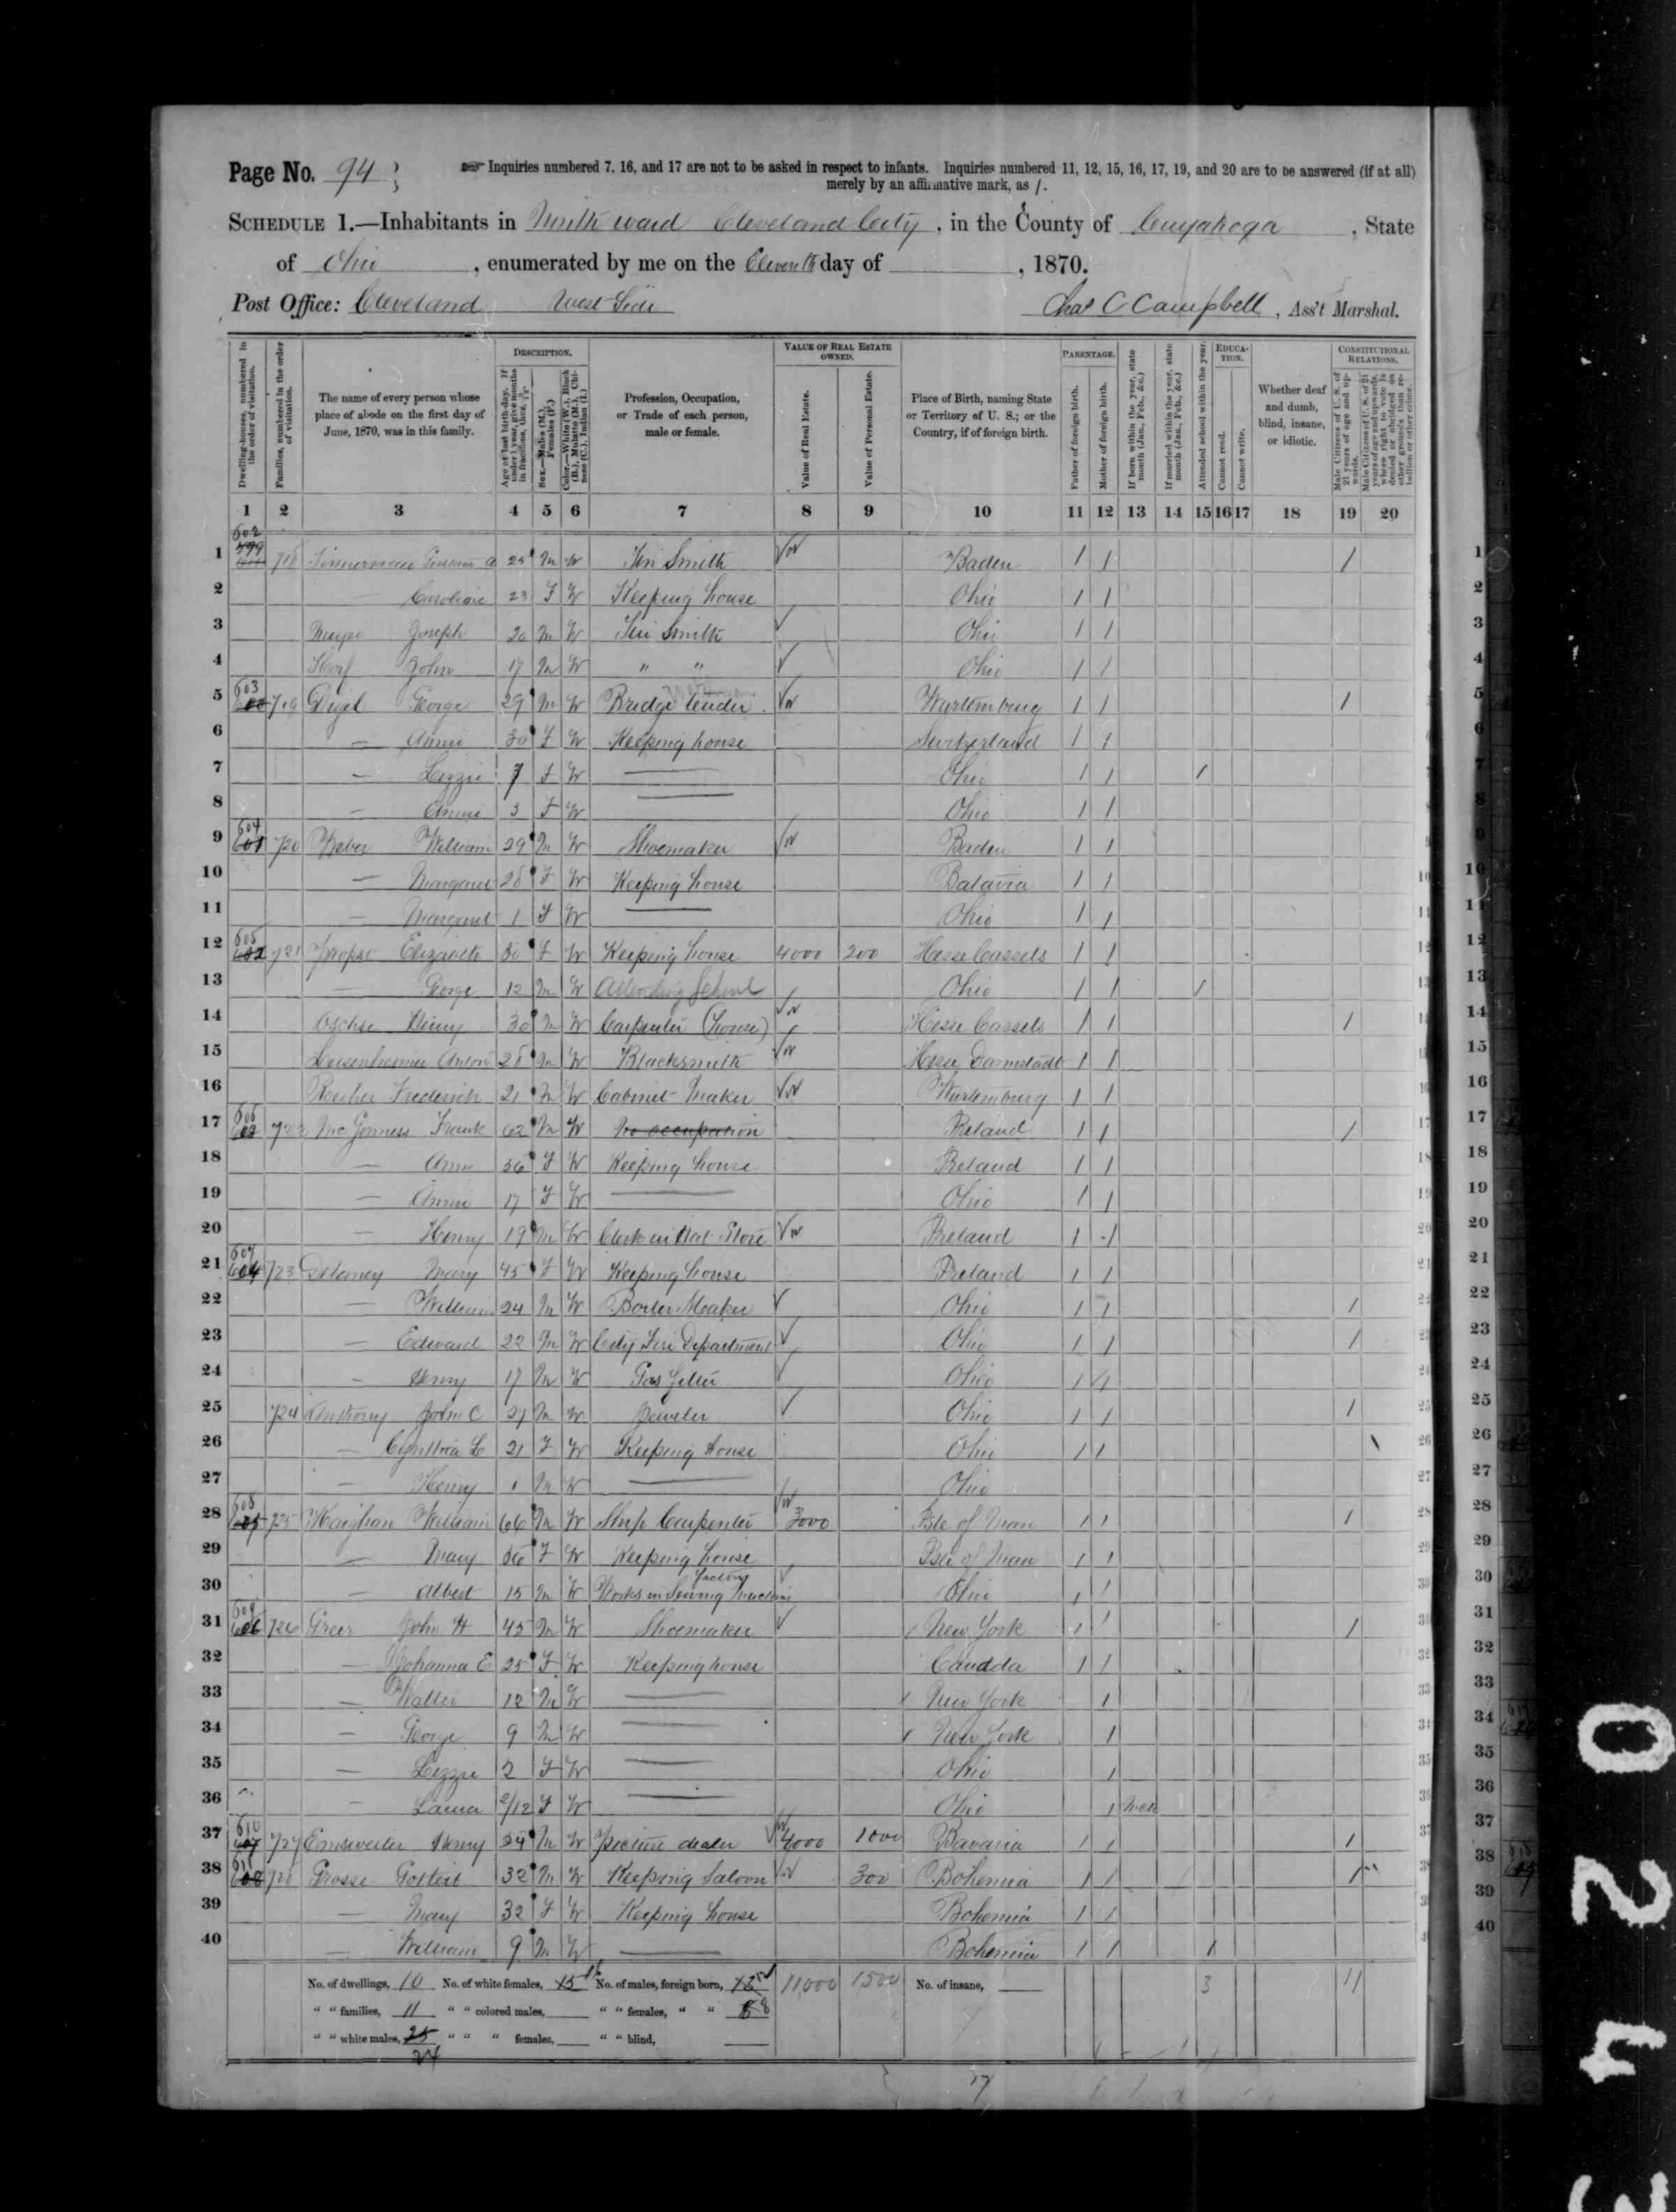 Page No. 94
Inquiries numbered 7, 16, and 17 are not to be asked in respect to infants. Inquiries numbered 11, 12, 15, 16, 17, 19, and 20 are to be answered (if at all)
merely by an affirmative mark, as /.
SCHEDULE 1.—Inhabitants in Ninth ward Cleveland City, in the County of Cuyahoga, State
of Ohio, enumerated by me on the Eleventh day of , 1870.
Post Office: Cleveland West Side Chas C Campbell, Ass't Marshal.
Dwelling-houses, numbered in the order of visitation.
Families, numbered in the order of visitation.
The name of every person whose place of abode on the first day of June, 1870, was in this family.
DESCRIPTION.
Age at last birth-day. If under 1 year, give months in fractions, thus, 3/12
Sex.—Males (M.), Females (F.)
Color.—White (W.), Black (B.), Mulatto (M.), Chinese (C.), Indian (I.)
Profession, Occupation, or Trade of each person, male or female.
VALUE OF REAL ESTATE OWNED.
Value of Real Estate.
Value of Personal Estate.
Place of Birth, naming State or Territory of U. S.; or the Country, if of foreign birth.
PARENTAGE.
Father of foreign birth.
Mother of foreign birth.
If born within the year, state month (Jan., Feb., &c.)
If married within the year, state month (Jan., Feb., &c.)
Attended school within the year.
EDUCATION.
Cannot read.
Cannot write.
Whether deaf and dumb, blind, insane, or idiotic.
CONSTITUTIONAL RELATIONS.
Male Citizens of U. S. of 21 years of age and upwards.
Male Citizens of U. S. of 21 years of age and upwards, where right to vote is denied or abridged on other grounds than rebellion or other crime.
1 2 3 4 5 6 7 8 9 10 11 12 13 14 15 16 17 18 19 20
1 602 718 25 M W Tin Smith Baden / / /
2 — Caroline 23 F W Keeping house Ohio / /
3 Joseph 20 M W Tin Smith Ohio / /
4 John 17 M W " " Ohio / /
5 603 719 George 29 M W Bridge tender Wurtemburg / / /
6 — Annie 30 F W Keeping house Switzerland / /
7 — Lizzie 7 F W — Ohio / / /
8 — Annie 3 F W — Ohio / /
9 604 720 Weber William 29 M W Shoemaker Baden / /
10 — Margaret 28 F W Keeping house Batavia / /
11 — Margaret 1 F W — Ohio / /
12 605 721 Elizabeth 50 F W Keeping house 4000 200 Hesse Cassels / /
13 — George 12 M W Attending School Ohio / / /
14 Henry 30 M W Carpenter (house) Hesse Cassels / / /
15 Anton 28 M W Blacksmith Hesse Darmstadt / /
16 Frederick 21 M W Cabinet Maker Wurtemburg / /
17 606 722 Frank 62 M W No occupation Ireland / / /
18 — Ann 56 F W Keeping house Ireland / /
19 — Annie 17 F W — Ohio / /
20 — Henry 19 M W Clerk in Hat Store Ireland / /
21 607 723 Delaney Mary 45 F W Keeping house Ireland / /
22 — William 24 M W Boiler Maker Ohio / / /
23 — Edward 22 M W City Fire Department Ohio / / /
24 — Henry 17 M W Gas fitter Ohio / /
25 724 Anthony John C 21 M W Jeweler Ohio / / /
26 — Cynthia L 21 F W Keeping house Ohio / /
27 — Henry 1 M W — Ohio
28 608 725 William 66 M W Ship Carpenter 3000 Isle of Man / / /
29 — Mary 56 F W Keeping house Isle of Man / /
30 — Albert 15 M W Works in Sewing Machine factory Ohio / /
31 609 726 Greer John H 45 M W Shoemaker New York / / /
32 — Johanna E 25 F W Keeping house Canada / /
33 — Walter 12 M W — New York /
34 — George 9 M W — New York /
35 — Lizzie 2 F W — Ohio /
36 — Laura 2/12 F W — Ohio /
37 610 727 Henry M W Picture dealer 4000 1000 Bavaria / / /
38 611 728 Grosse Gottleib 32 M W Keeping Saloon 300 Bohemia / / /
39 — Mary 32 F W Keeping house Bohemia / /
40 — William 9 M W — Bohemia / / /
No. of dwellings, 10 No. of white females, 15 16 No. of males, foreign born, 11,000 1500 No. of insane, — 3 11
" " families, 11 " " colored males, " " females, " " 8
" " white males, 25 24 " " " females, " " blind,
17